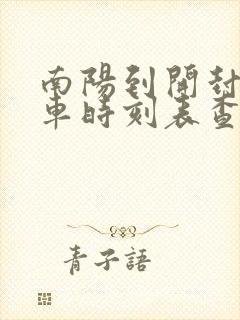 南陽到開封
車時刻表查
青子語